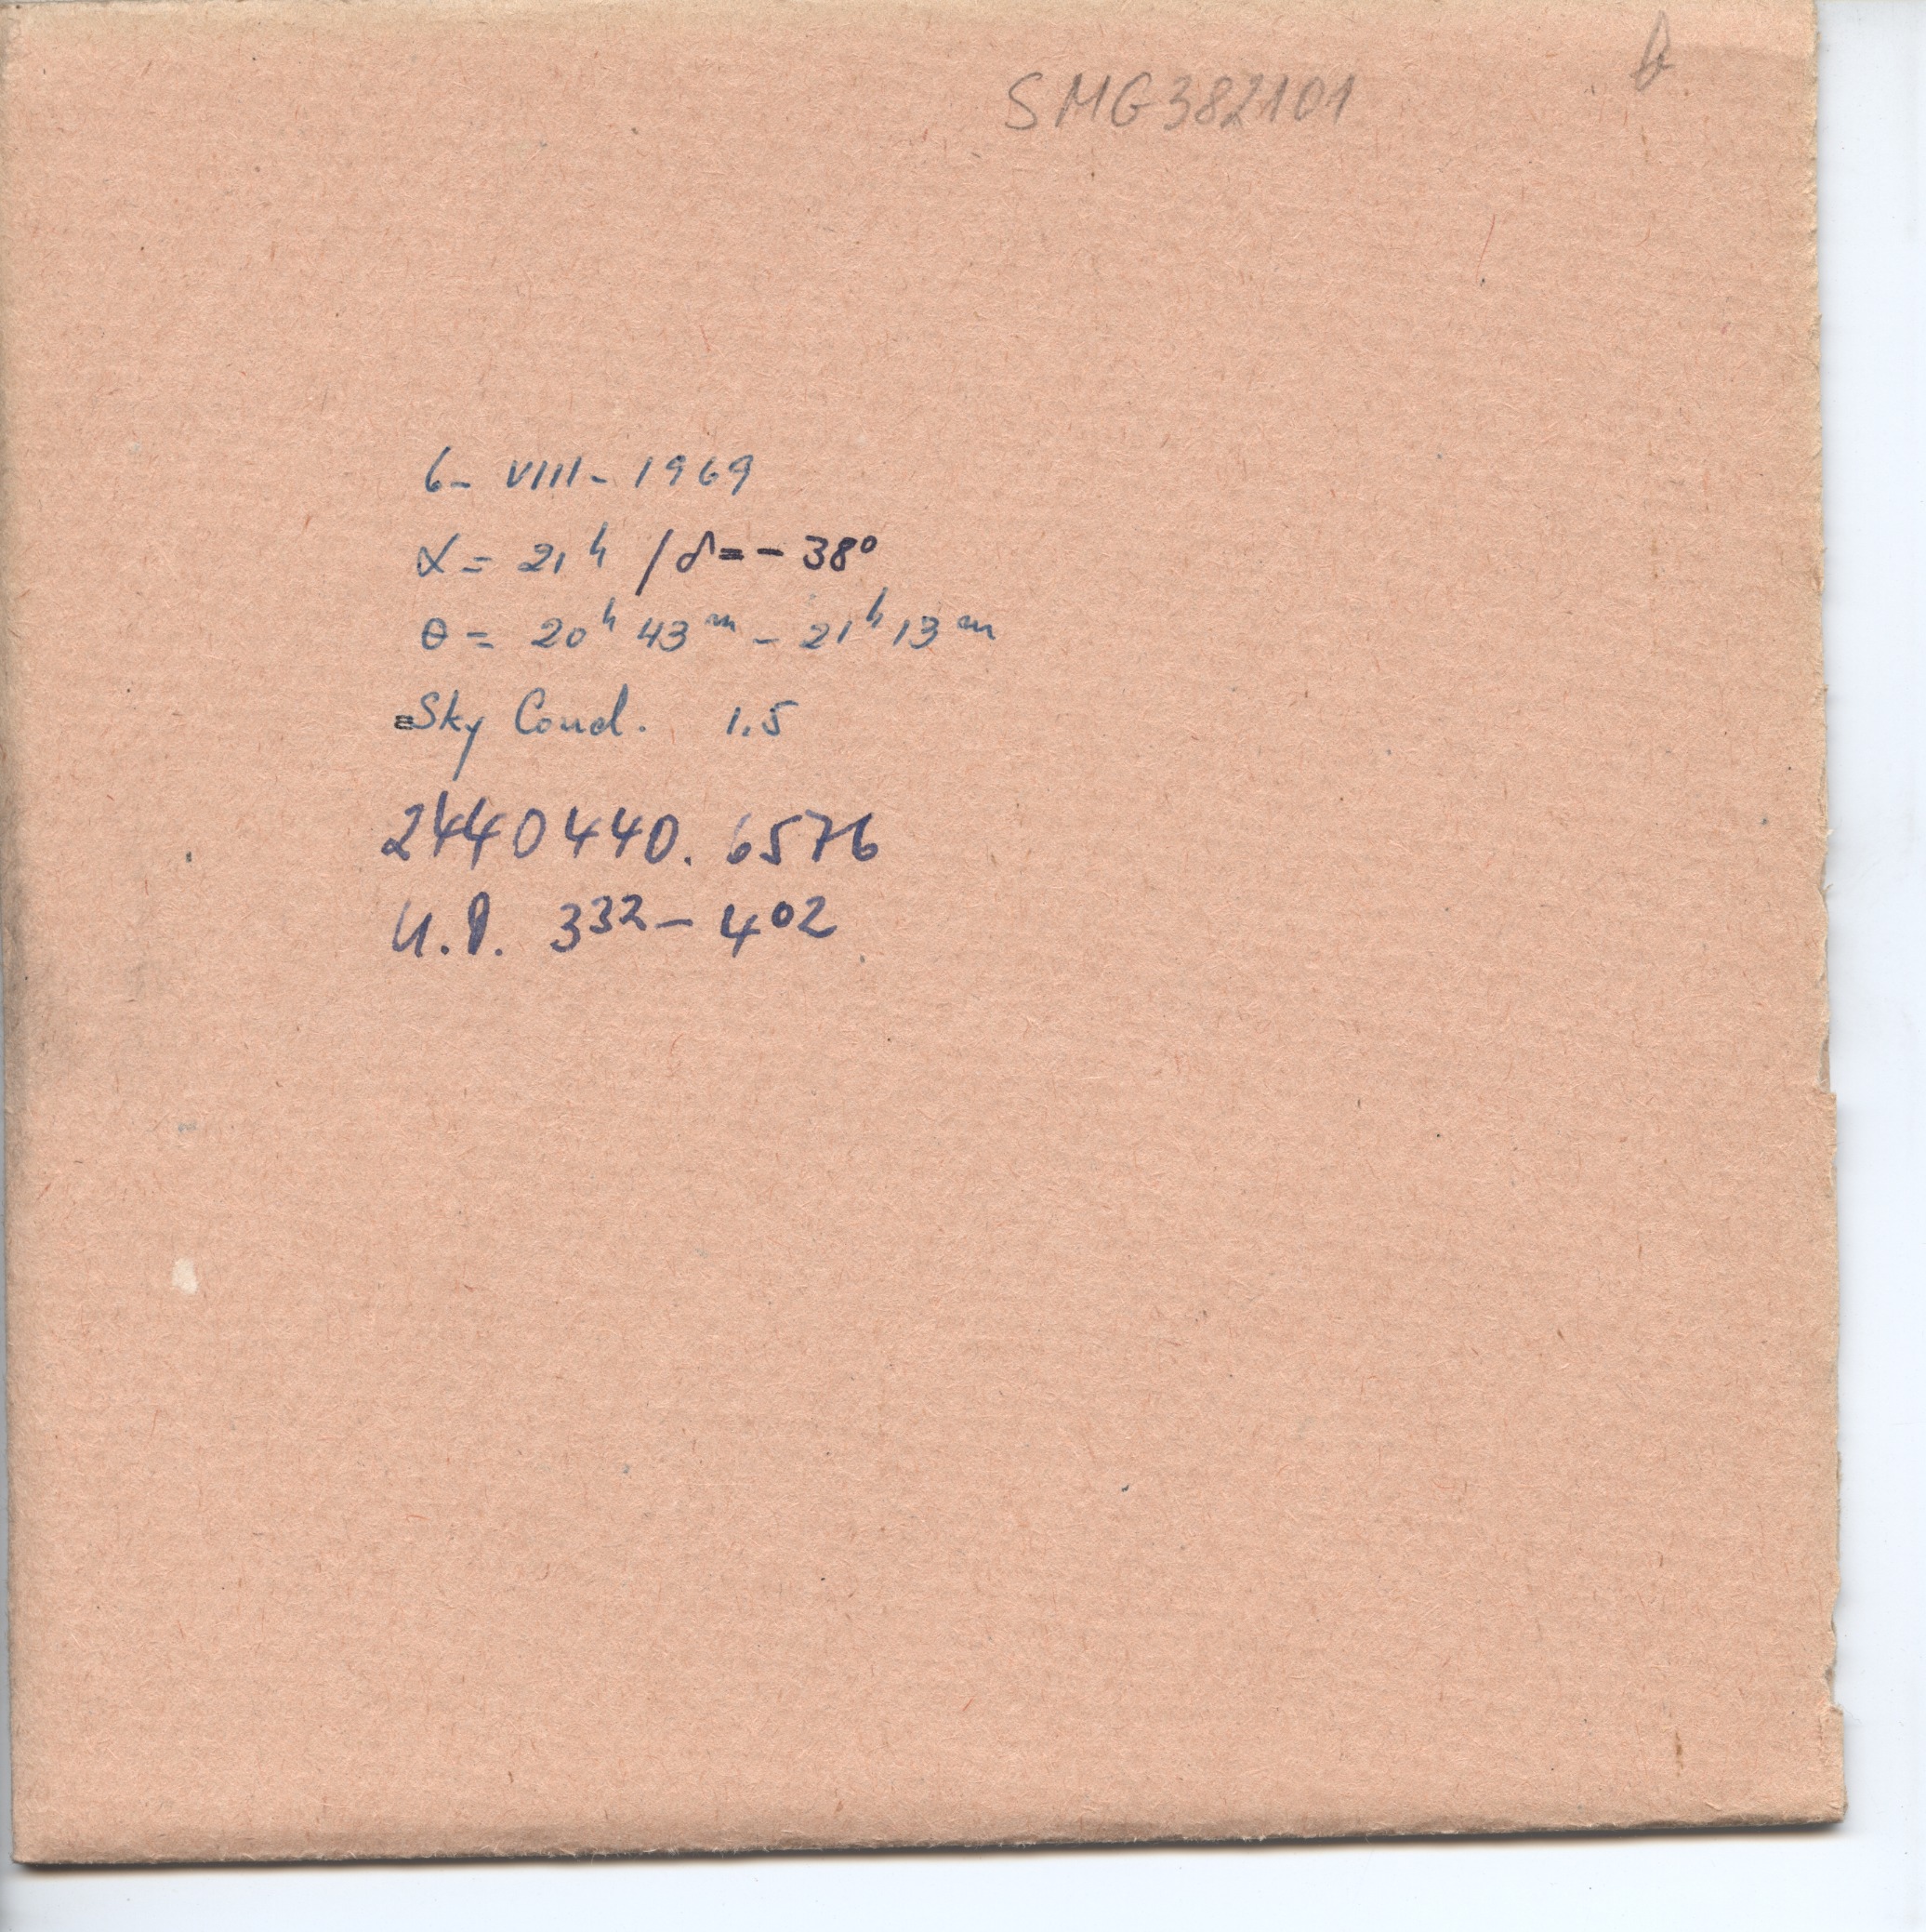 SMG382101 b
6- VIII- 1969
α= 21ʰ /δ=- 38°
θ= 20ʰ 43ᵐ - 21ʰ 13ᵐ
Sky Cond. 1.5
2440440.6576
U.P. 332- 402